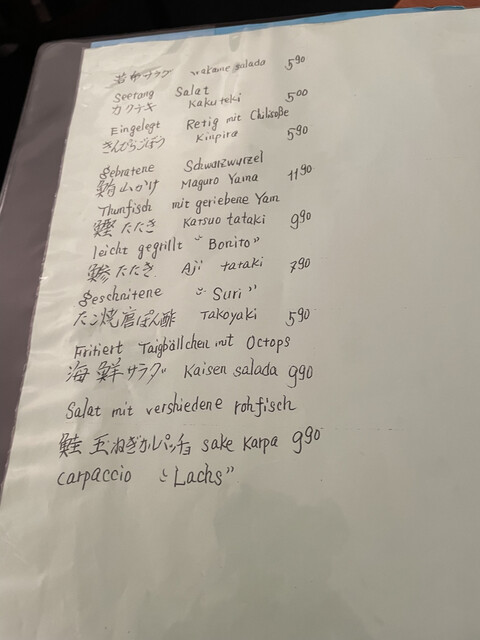 若布サラダ wakame salada 5.90
Seetang Salat
カクテキ Kakuteki 5.00
Eingelegt Retig mit Chilisoße
きんぴらごぼう Kinpira 5.90
gebratene Schwarzwurzel
鮪山かけ Maguro Yama 11.90
Thunfisch mit geriebene Yam
鰹たたき Katsuo tataki 9.90
leicht gegrillt "Bonito"
鯵たたき Aji tataki 7.90
geschnitene "Suri"
たこ焼唐ぽん酢 Takoyaki 5.90
Fritiert Taigbällchen mit Octops
海鮮サラダ Kaisen salada 9.90
Salat mit vershiedene rohfisch
鮭玉ねぎカルパッチョ sake Karpa 9.90
carpaccio "Lachs"